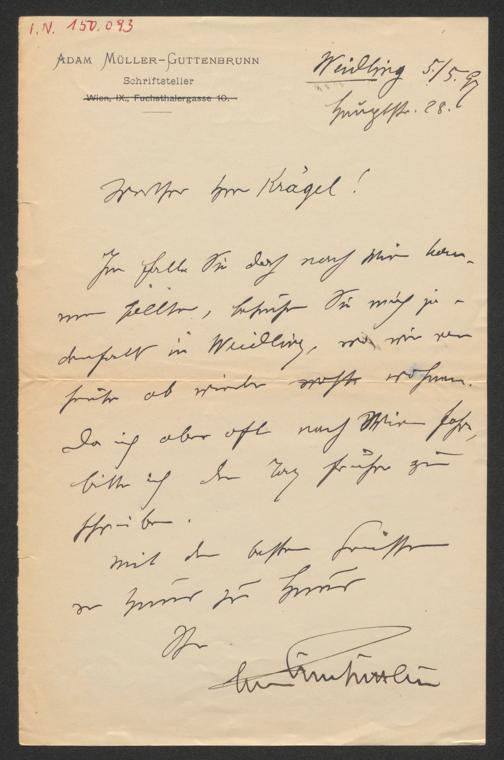 I.N. 150.093
ADAM MÜLLER-GUTTENBRUNN
Schriftsteller
Wien, IX., Fuchsthalergasse 10.
Weidling 5./5. 97
Hauptstr. 28.
Werther Herr Krägel!
Im Falle Sie doch nach Wien kom-
men sollten, besuchen Sie mich je-
denfalls in Weidling, wo wir von
heute ab wieder wohnen.
Da ich aber oft nach Wien fahre,
bitte ich den Tag früher zu
schreiben.
Mit den besten Grüssen
von Haus zu Haus
Ihr